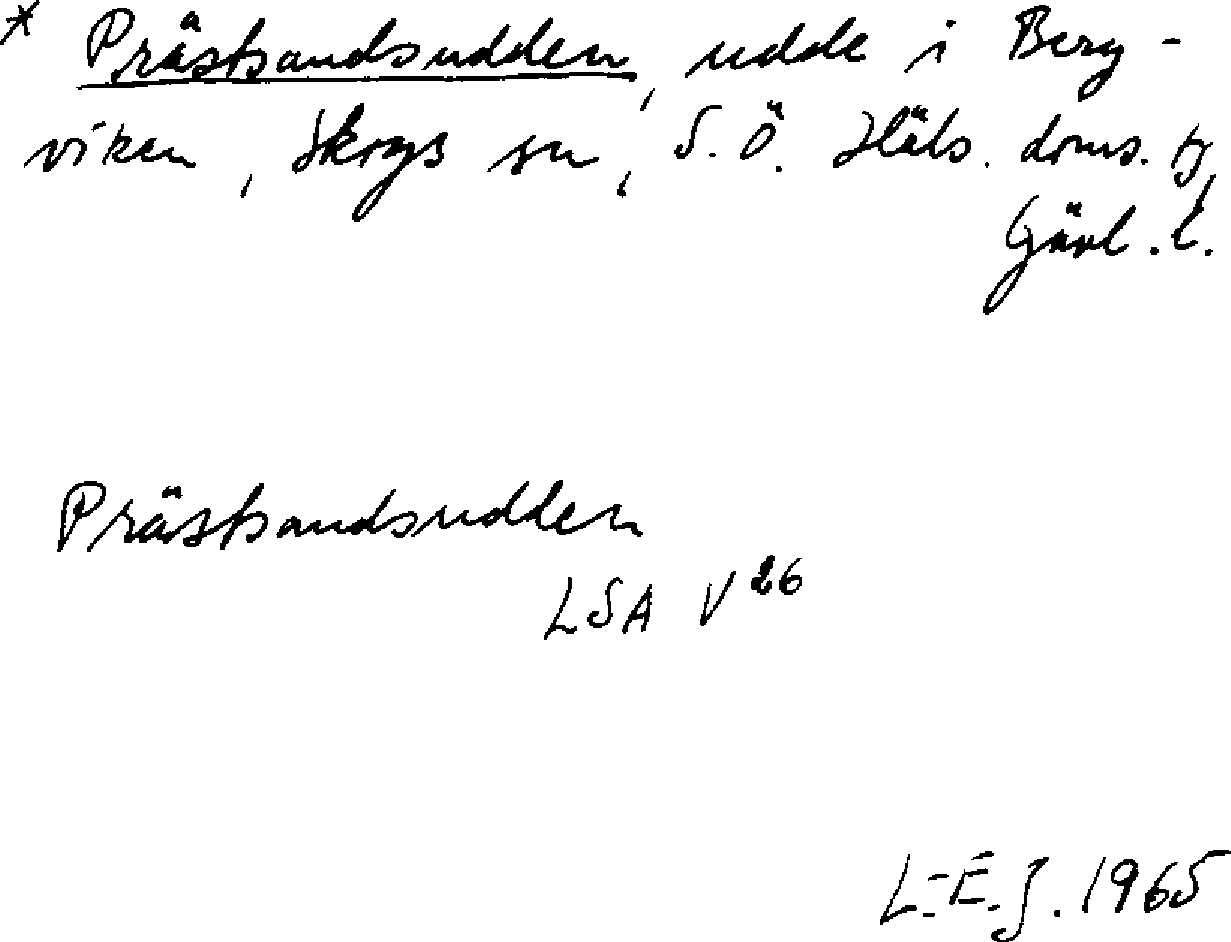 * Prästsandsudden, udde i Berg-
viken, Skogs sn, S. Ö. Häls. doms. tg,
Gävl. l.
Prästsandsudden
LSA V 26
L.-E. J. 1965